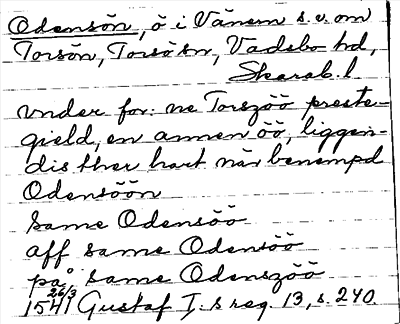 Odensön, ö i Vänern s.v. om
Torsön, Torsö sn, Vadsbo hd,
Skarab. l.
vnder for: ne Torszöö preste-
gield, en annen öö, liggen-
dis ther hart när benempd
Odensöön
same Odensöö
aff same Odensöö
på same Odenszöö
26/3
1541 Gustaf I:s reg. 13, s. 240.